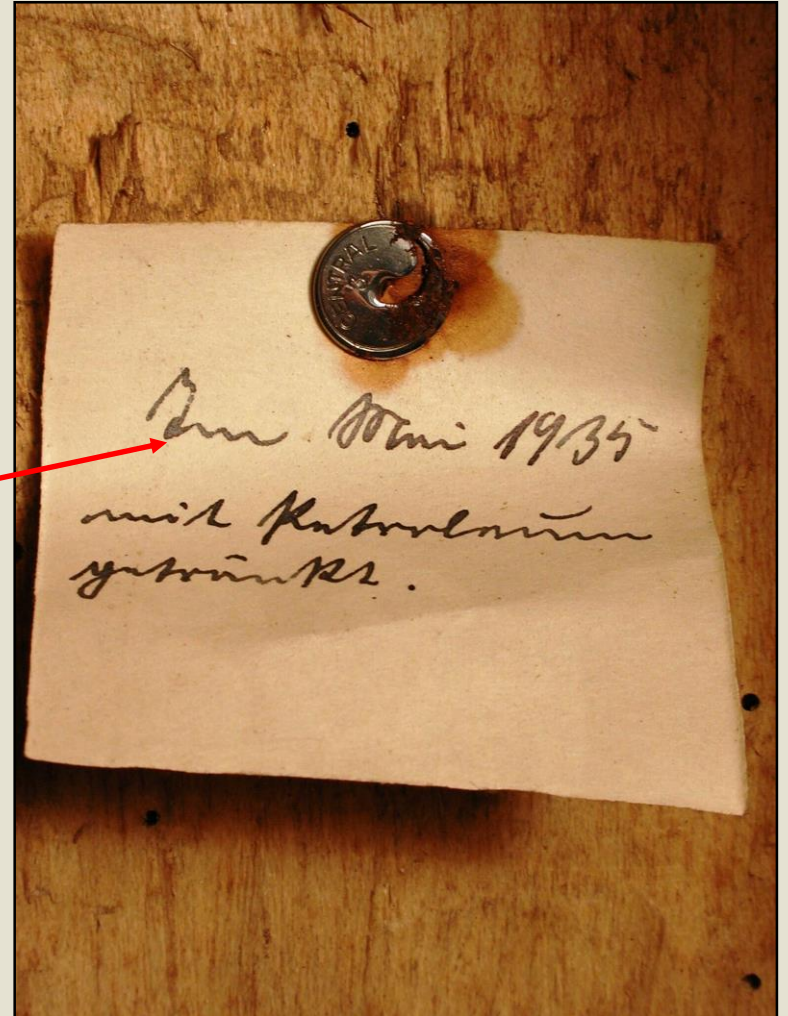 ZENTRAL
Im Mai 1935
mit Petroleum
getränkt.